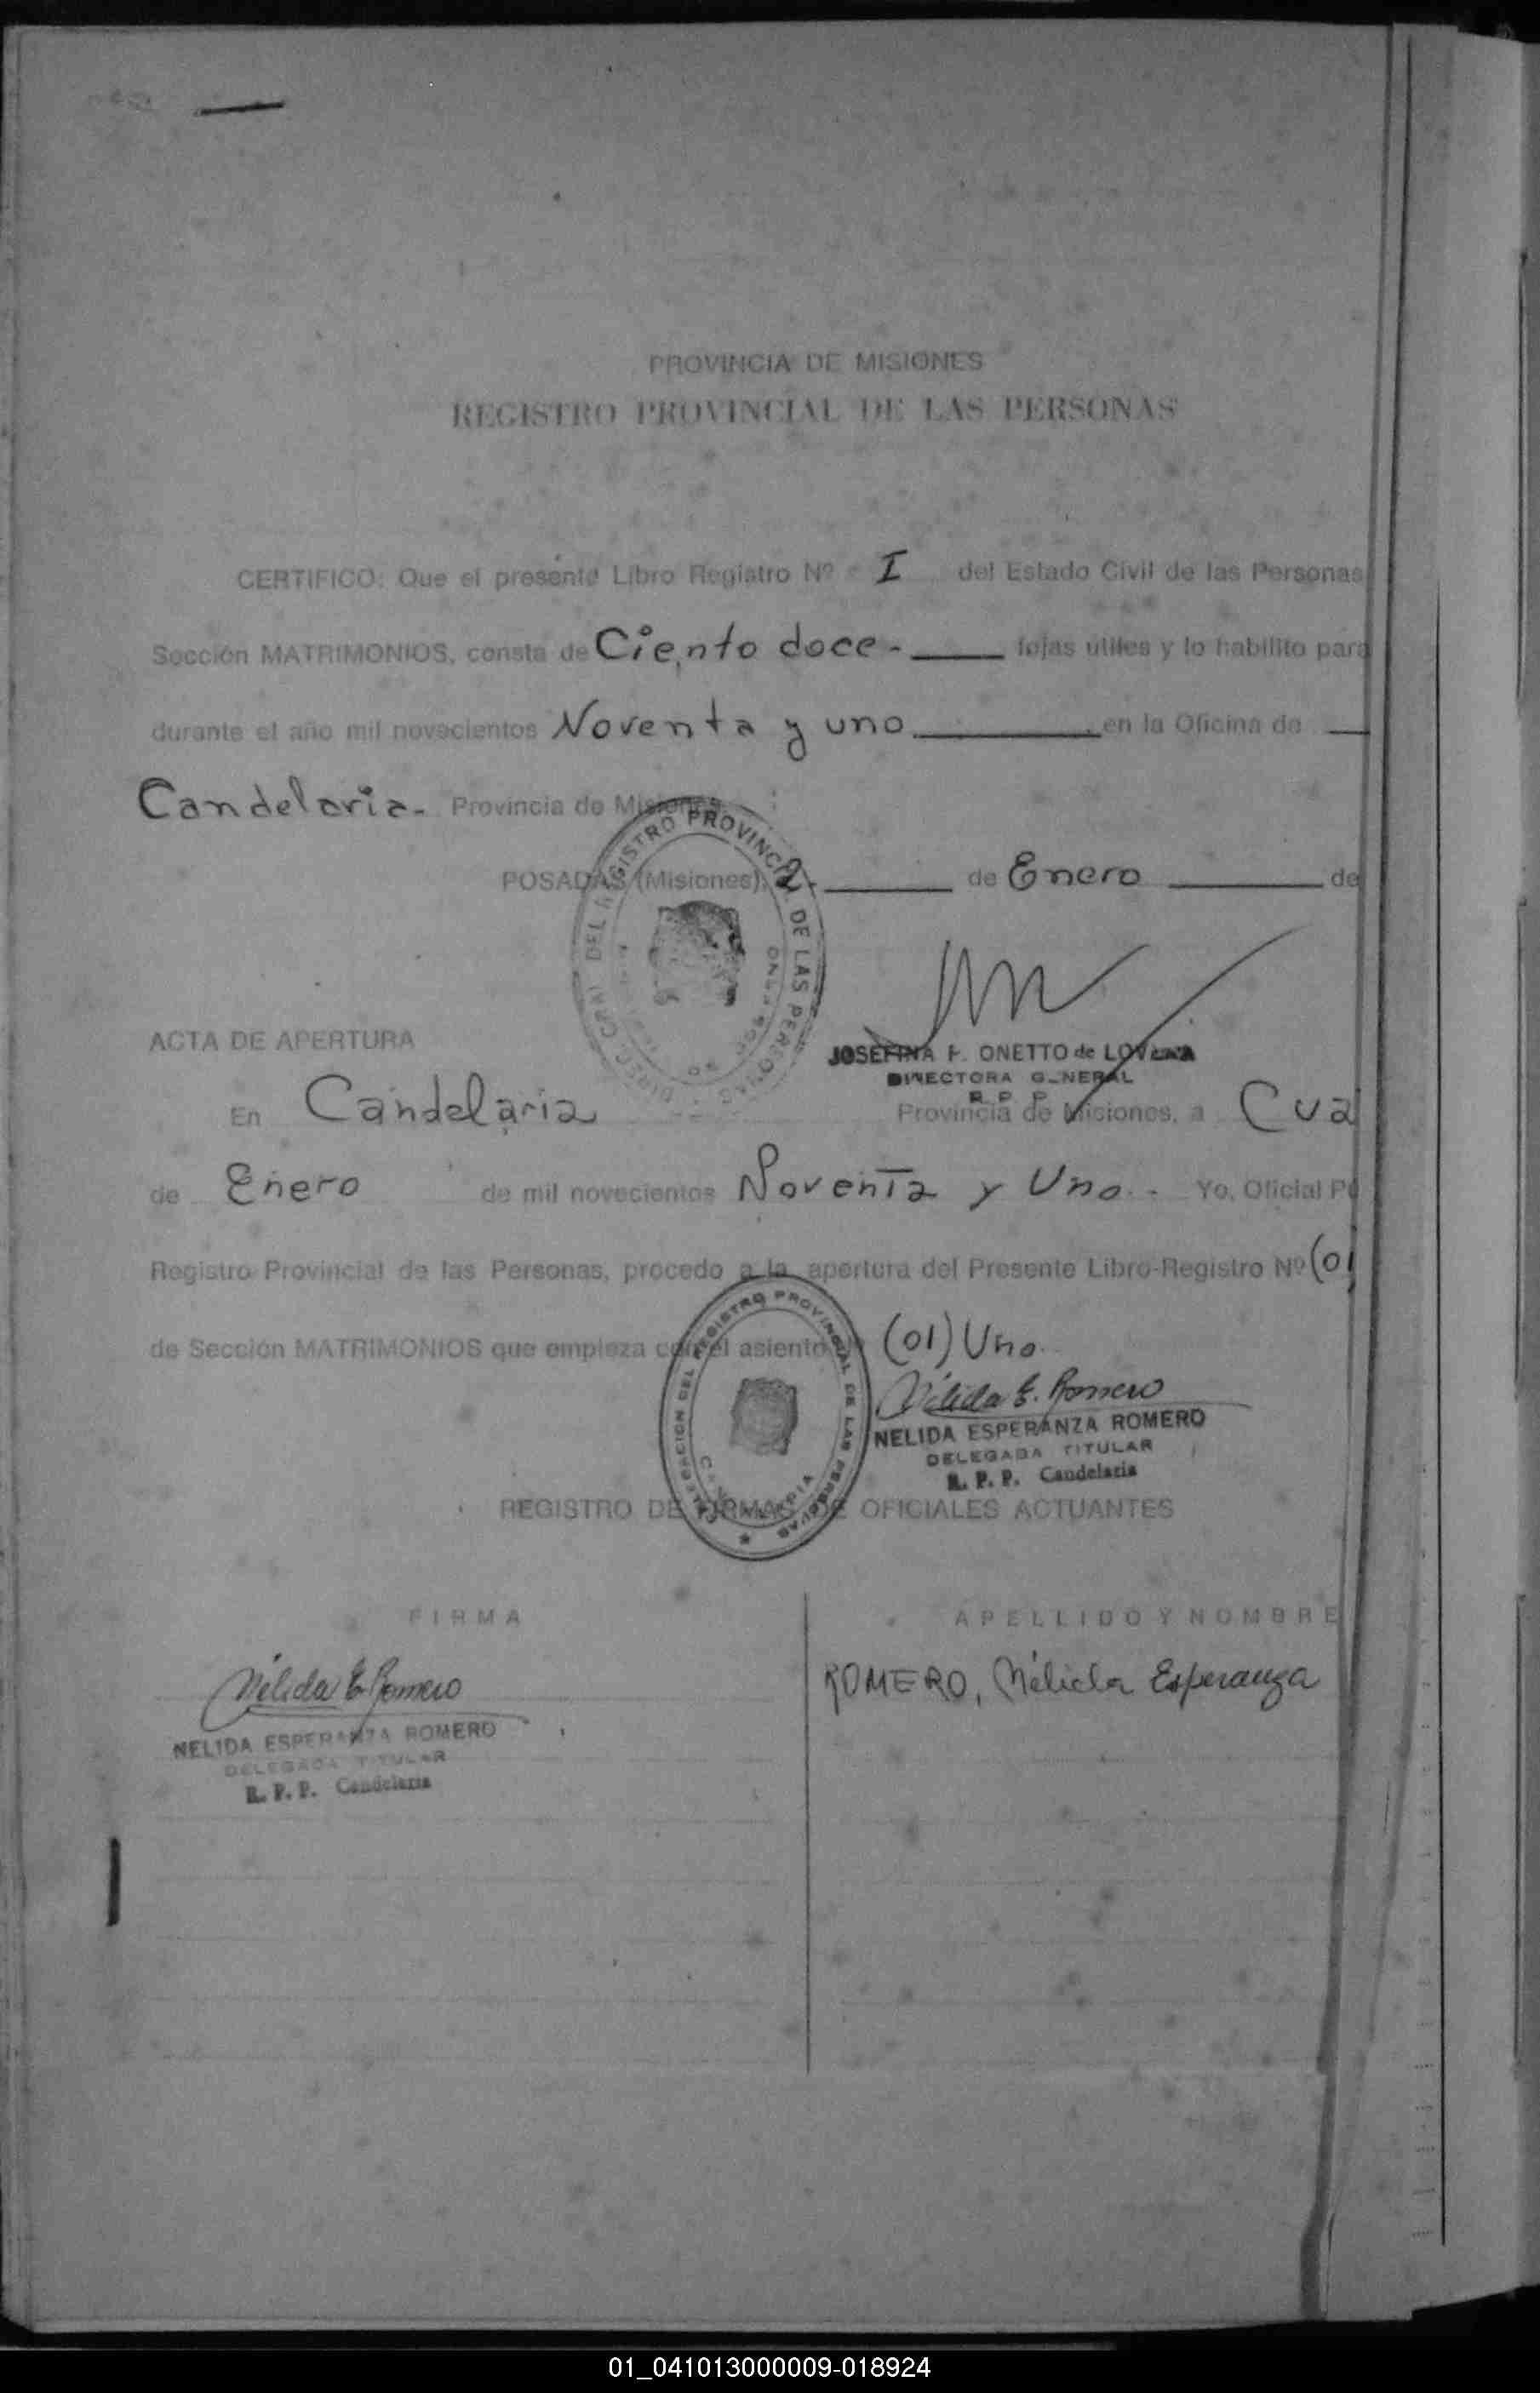 PROVINCIA DE MISIONES
REGISTRO PROVINCIAL DE LAS PERSONAS
CERTIFICO: Que el presente Libro Registro Nº I del Estado Civil de las Personas
Sección MATRIMONIOS, consta de Ciento doce.- fojas útiles y lo habilito para
durante el año mil novecientos Noventa y uno en la Oficina de
Candelaria.- Provincia de Misiones.
POSADAS (Misiones), 2.- de Enero de
DEL REGISTRO PROVINCIAL DE LAS PERSONAS
JOSEFINA F. ONETTO de
DIRECTORA GENERAL
R. P. P.
ACTA DE APERTURA
En Candelaria Provincia de Misiones, a Cua
de Enero de mil novecientos Noventa y Uno.- Yo, Oficial Pú
Registro Provincial de las Personas, procedo a la apertura del Presente Libro-Registro Nº (01
de Sección MATRIMONIOS que empieza con el asiento (01) Uno.
DELEGACION DEL REGISTRO PROVINCIAL DE LAS PERSONAS
CANDELARIA
Nélida E. Romero
NELIDA ESPERANZA ROMERO
DELEGADA TITULAR
R. P. P. Candelaria
REGISTRO DE FIRMAS DE OFICIALES ACTUANTES
FIRMA APELLIDO Y NOMBRE
Nélida E. Romero ROMERO, Nélida Esperanza
NELIDA ESPERANZA ROMERO
DELEGADA TITULAR
R. P. P. Candelaria
01_041013000009-018924